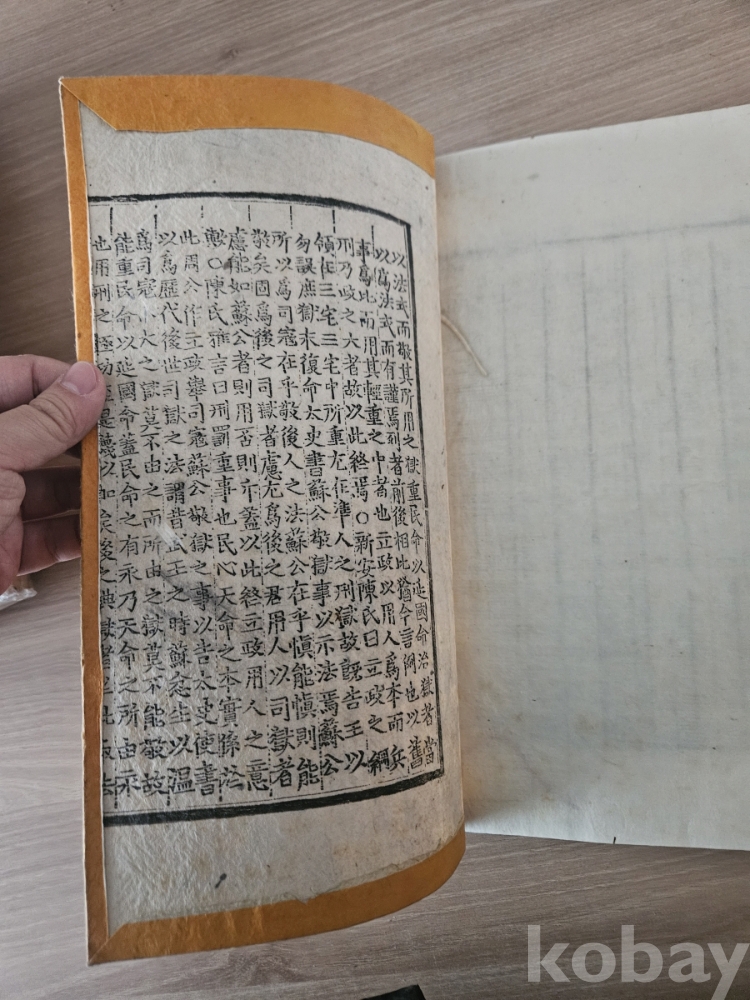 以法式而敬其所用之獄重民命以延國命治獄者當
以爲法式而有謹焉列者前後相比猶今言例也以舊
事爲比而用其輕重之中者也立政以用人爲本而兵
刑乃政之大者故以此終焉○新安陳氏曰立政之綱
領在三宅三宅中所重尤在準人之刑獄故旣告王以
勿誤庶獄末復命太史書蘇公敬獄事以示法焉蘇公
所以爲司寇在乎敬後人之法蘇公在乎愼能愼則能
敬矣固爲後之司獄者慮尤爲後之君用人以司獄者
慮能如蘇公者則用否則亦蓋以此終立政用人之意
歟○陳氏雅言曰刑罰重事也民心天命之本實係於
此周公作立政舉司寇蘇公敬獄之事以告太史使書
以爲歷代後世司獄之法謂昔武王之時蘇忿生以溫
爲司寇小大之獄莫不由之而所由之獄莫不能敬故
能重民命以延國命蓋民命之有永乃天命之所由永
也用刑之極功至是蔑以加矣後之典獄者
kobay